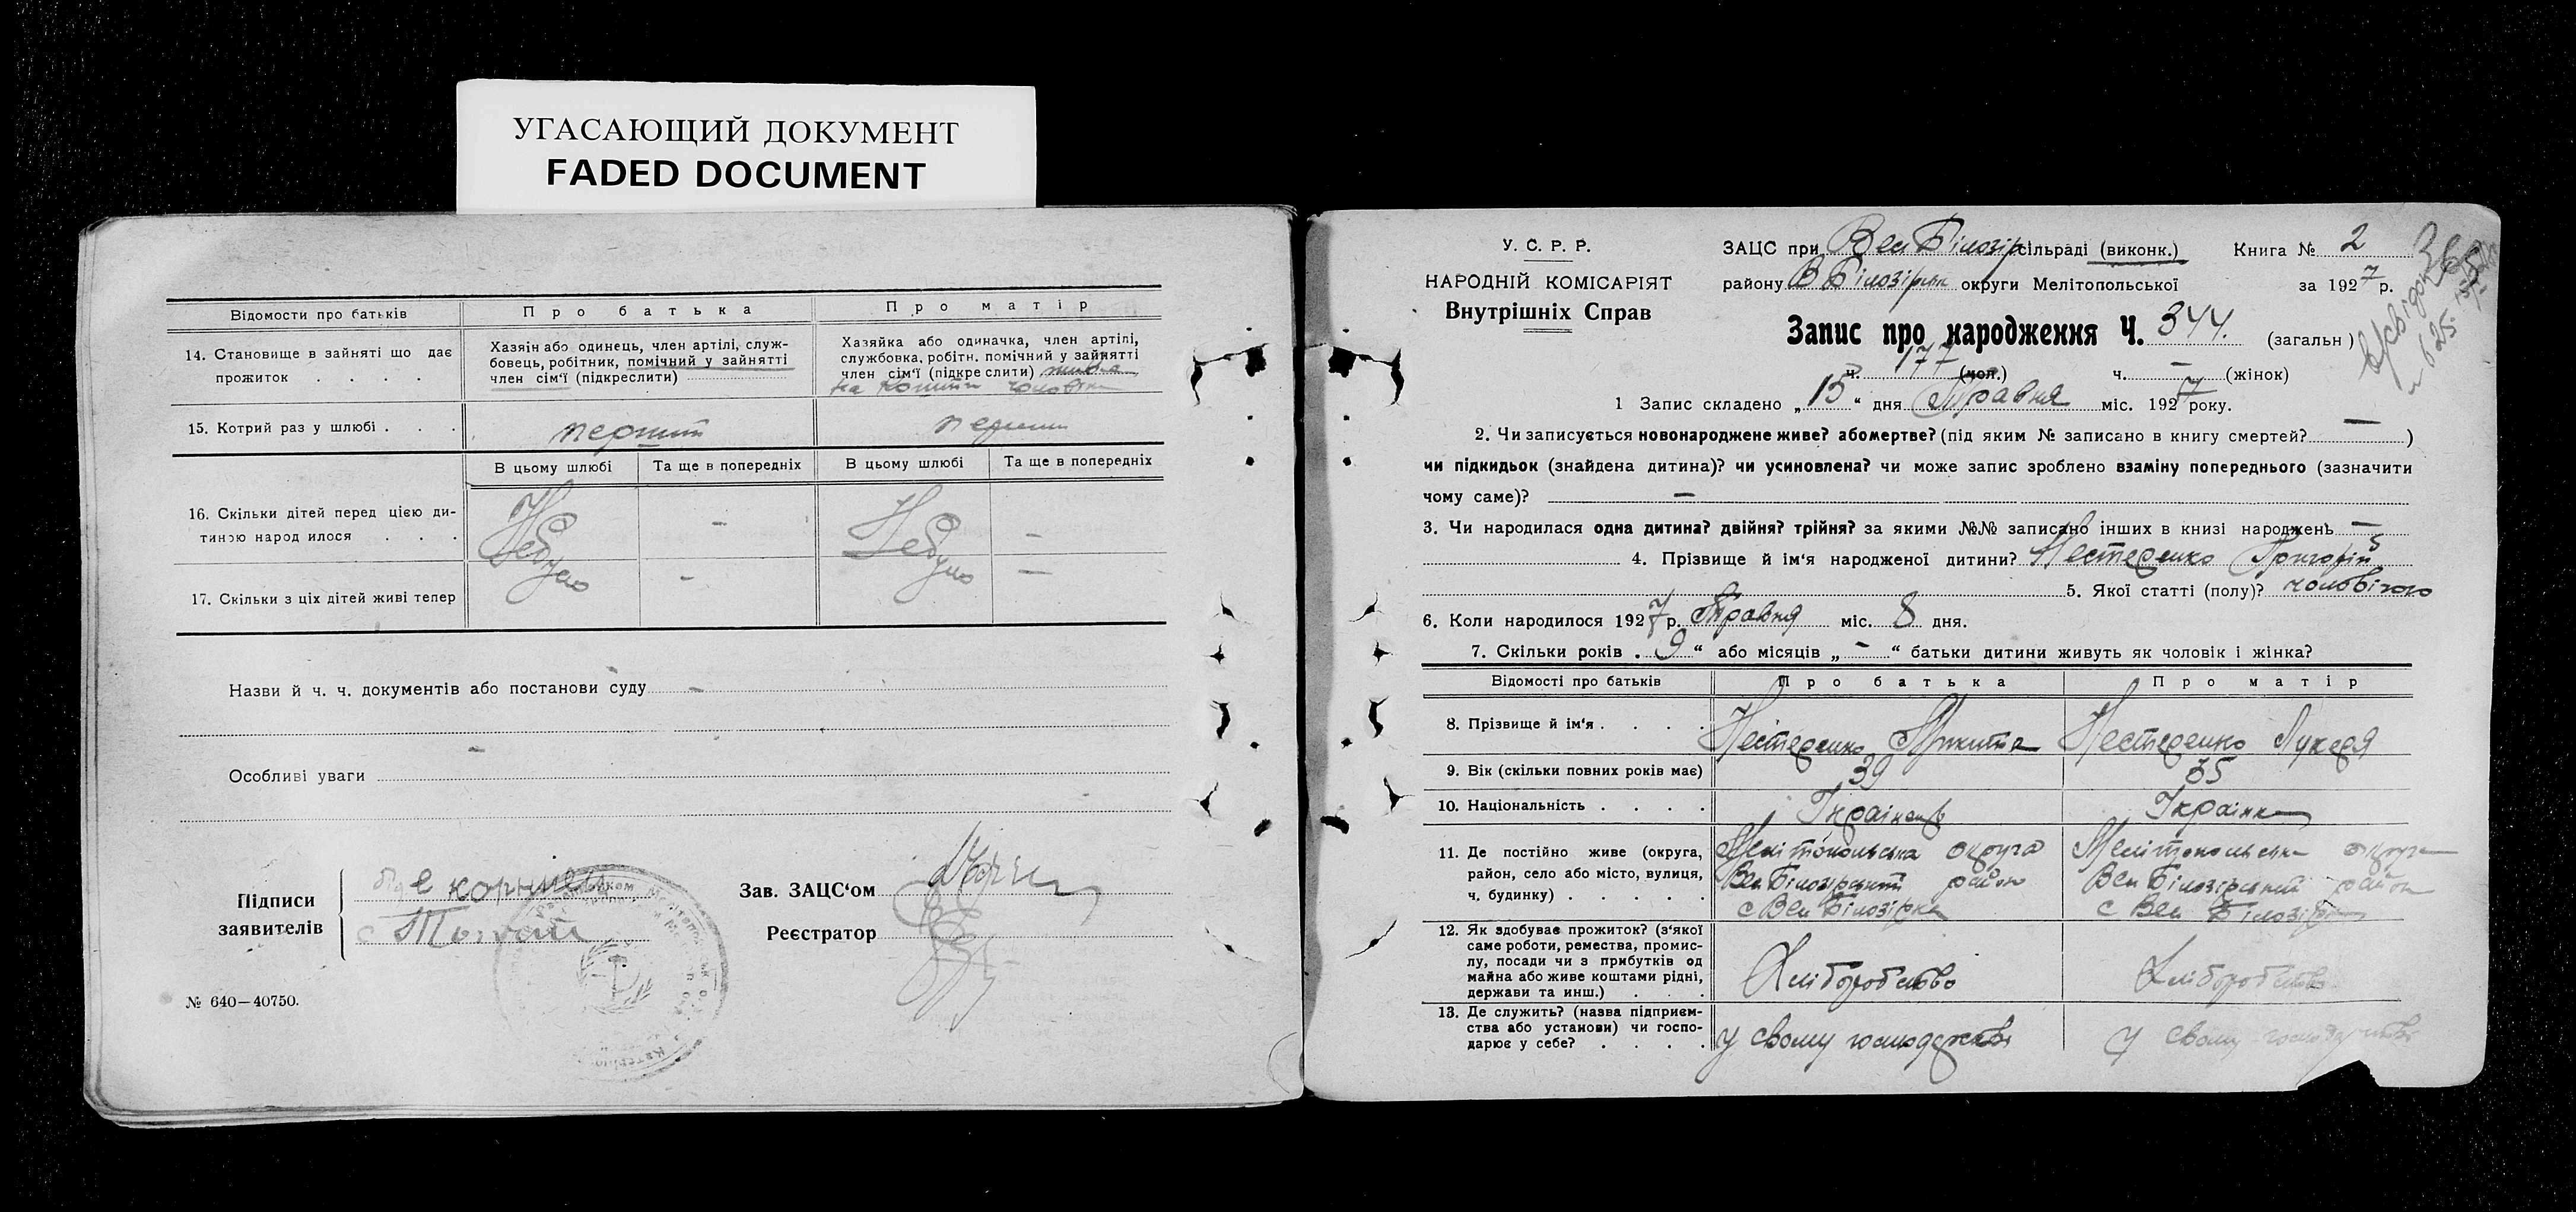 УГАСАЮЩИЙ ДОКУМЕНТ
FADED DOCUMENT
Відомости про батьків
Про батька
Про матір
14. Становище в зайняті що дає прожиток . . . .
Хазяін або одинець, член артілі, служ-
бовець, робітник, помічний у зайнятті
член сім'ї (підкреслити)
Хазяйка або одиначка, член артілі,
службовка, робітн. помічний у зайнятті
член сім'ї (підкреслити) живе
на кошти чоловіка
15. Котрий раз у шлюбі . . .
перший
перший
В цьому шлюбі
Та ще в попередніх
В цьому шлюбі
Та ще в попередніх
16. Скільки дітей перед цією ди-
тиною народилося . . .
Не було
–
Не було
–
17. Скільки з ціх дітей живі тепер
–
–
Назви й ч. ч. документів або постанови суду –
Особливі уваги –
Підписи
заявителів
Зав. ЗАЦС'ом
Реєстратор
№ 640—40750.
У. С. Р. Р.
НАРОДНІЙ КОМІСАРІЯТ
Внутрішніх Справ
ЗАЦС при Вел Білозір сільраді (виконк.)
Книга № 2
району В Білозірськ округи Мелітопольської
за 1927 р.
Запис про народження Ч. 344. (загальн)
ч. 177 (чол.) ч. – (жінок)
1 Запис складено „15“ дня Травня міс. 1927 року.
2. Чи записується новонароджене живе? або мертве? (під яким № записано в книгу смертей? – )
чи підкидьок (знайдена дитина)? чи усиновлена? чи може запис зроблено взаміну попереднього (зазначити
чому саме)? –
3. Чи народилася одна дитина? двійня? трійня? за якими №№ записано інших в книзі народжень –
4. Прізвище й ім'я народженої дитини? Нестеренко Григорій
5. Якої статті (полу)? чоловічого
6. Коли народилося 1927 р. Травня міс. 8 дня.
7. Скільки років „9“ або місяців „–“ батьки дитини живуть як чоловік і жінка?
Відомості про батьків
Про батька
Про матір
8. Прізвище й ім'я . . . .
Нестеренко Микита
Нестеренко Лукеря
9. Вік (скільки повних років має)
39
35
10. Національність . . . .
Українець
Українка
11. Де постійно живе (округа,
район, село або місто, вулиця,
ч. будинку) . . . . .
Мелітопольська округа
Вел Білозірський район
с Вел Білозірка
Мелітопольська округа
Вел Білозірський район
с Вел Білозірка
12. Як здобуває прожиток? (з'якої
саме роботи, ремества, промис-
лу, посади чи з прибутків од
майна або живе коштами рідні,
держави та инш.) . . .
Хліборобство
Хліборобство
13. Де служить? (назва підприєм-
ства або установи) чи госпо-
дарює у себе? . . . .
у свому господарстві
у свому господарстві